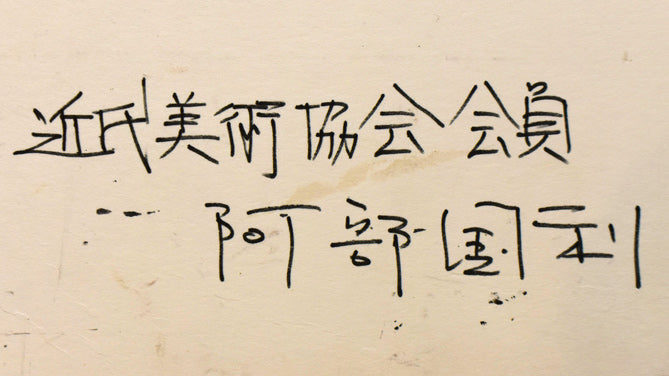 近代美術協会会員
阿部国利